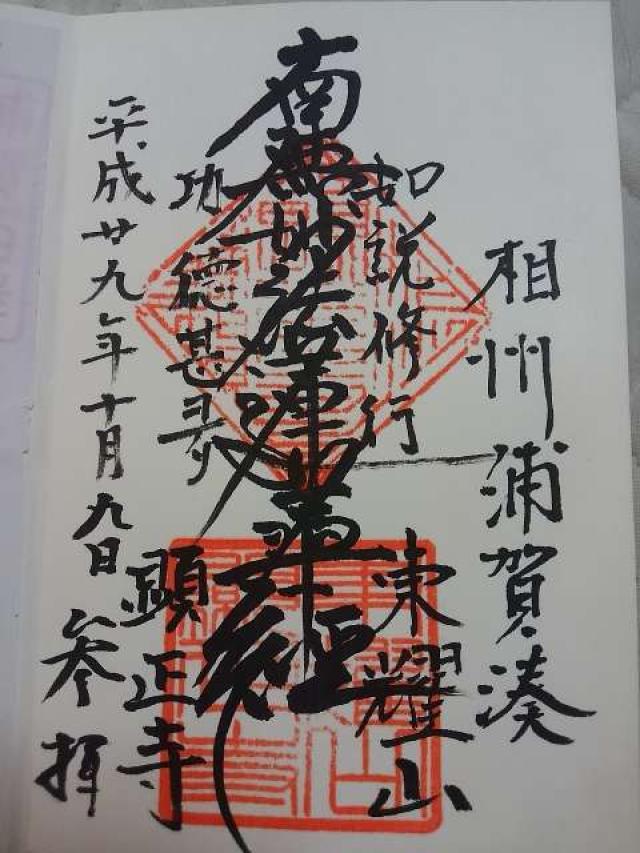 相州浦賀湊
如説修行
東耀山
南無妙法蓮華経
功徳甚多
顕正寺
平成廿九年十月九日
参拝